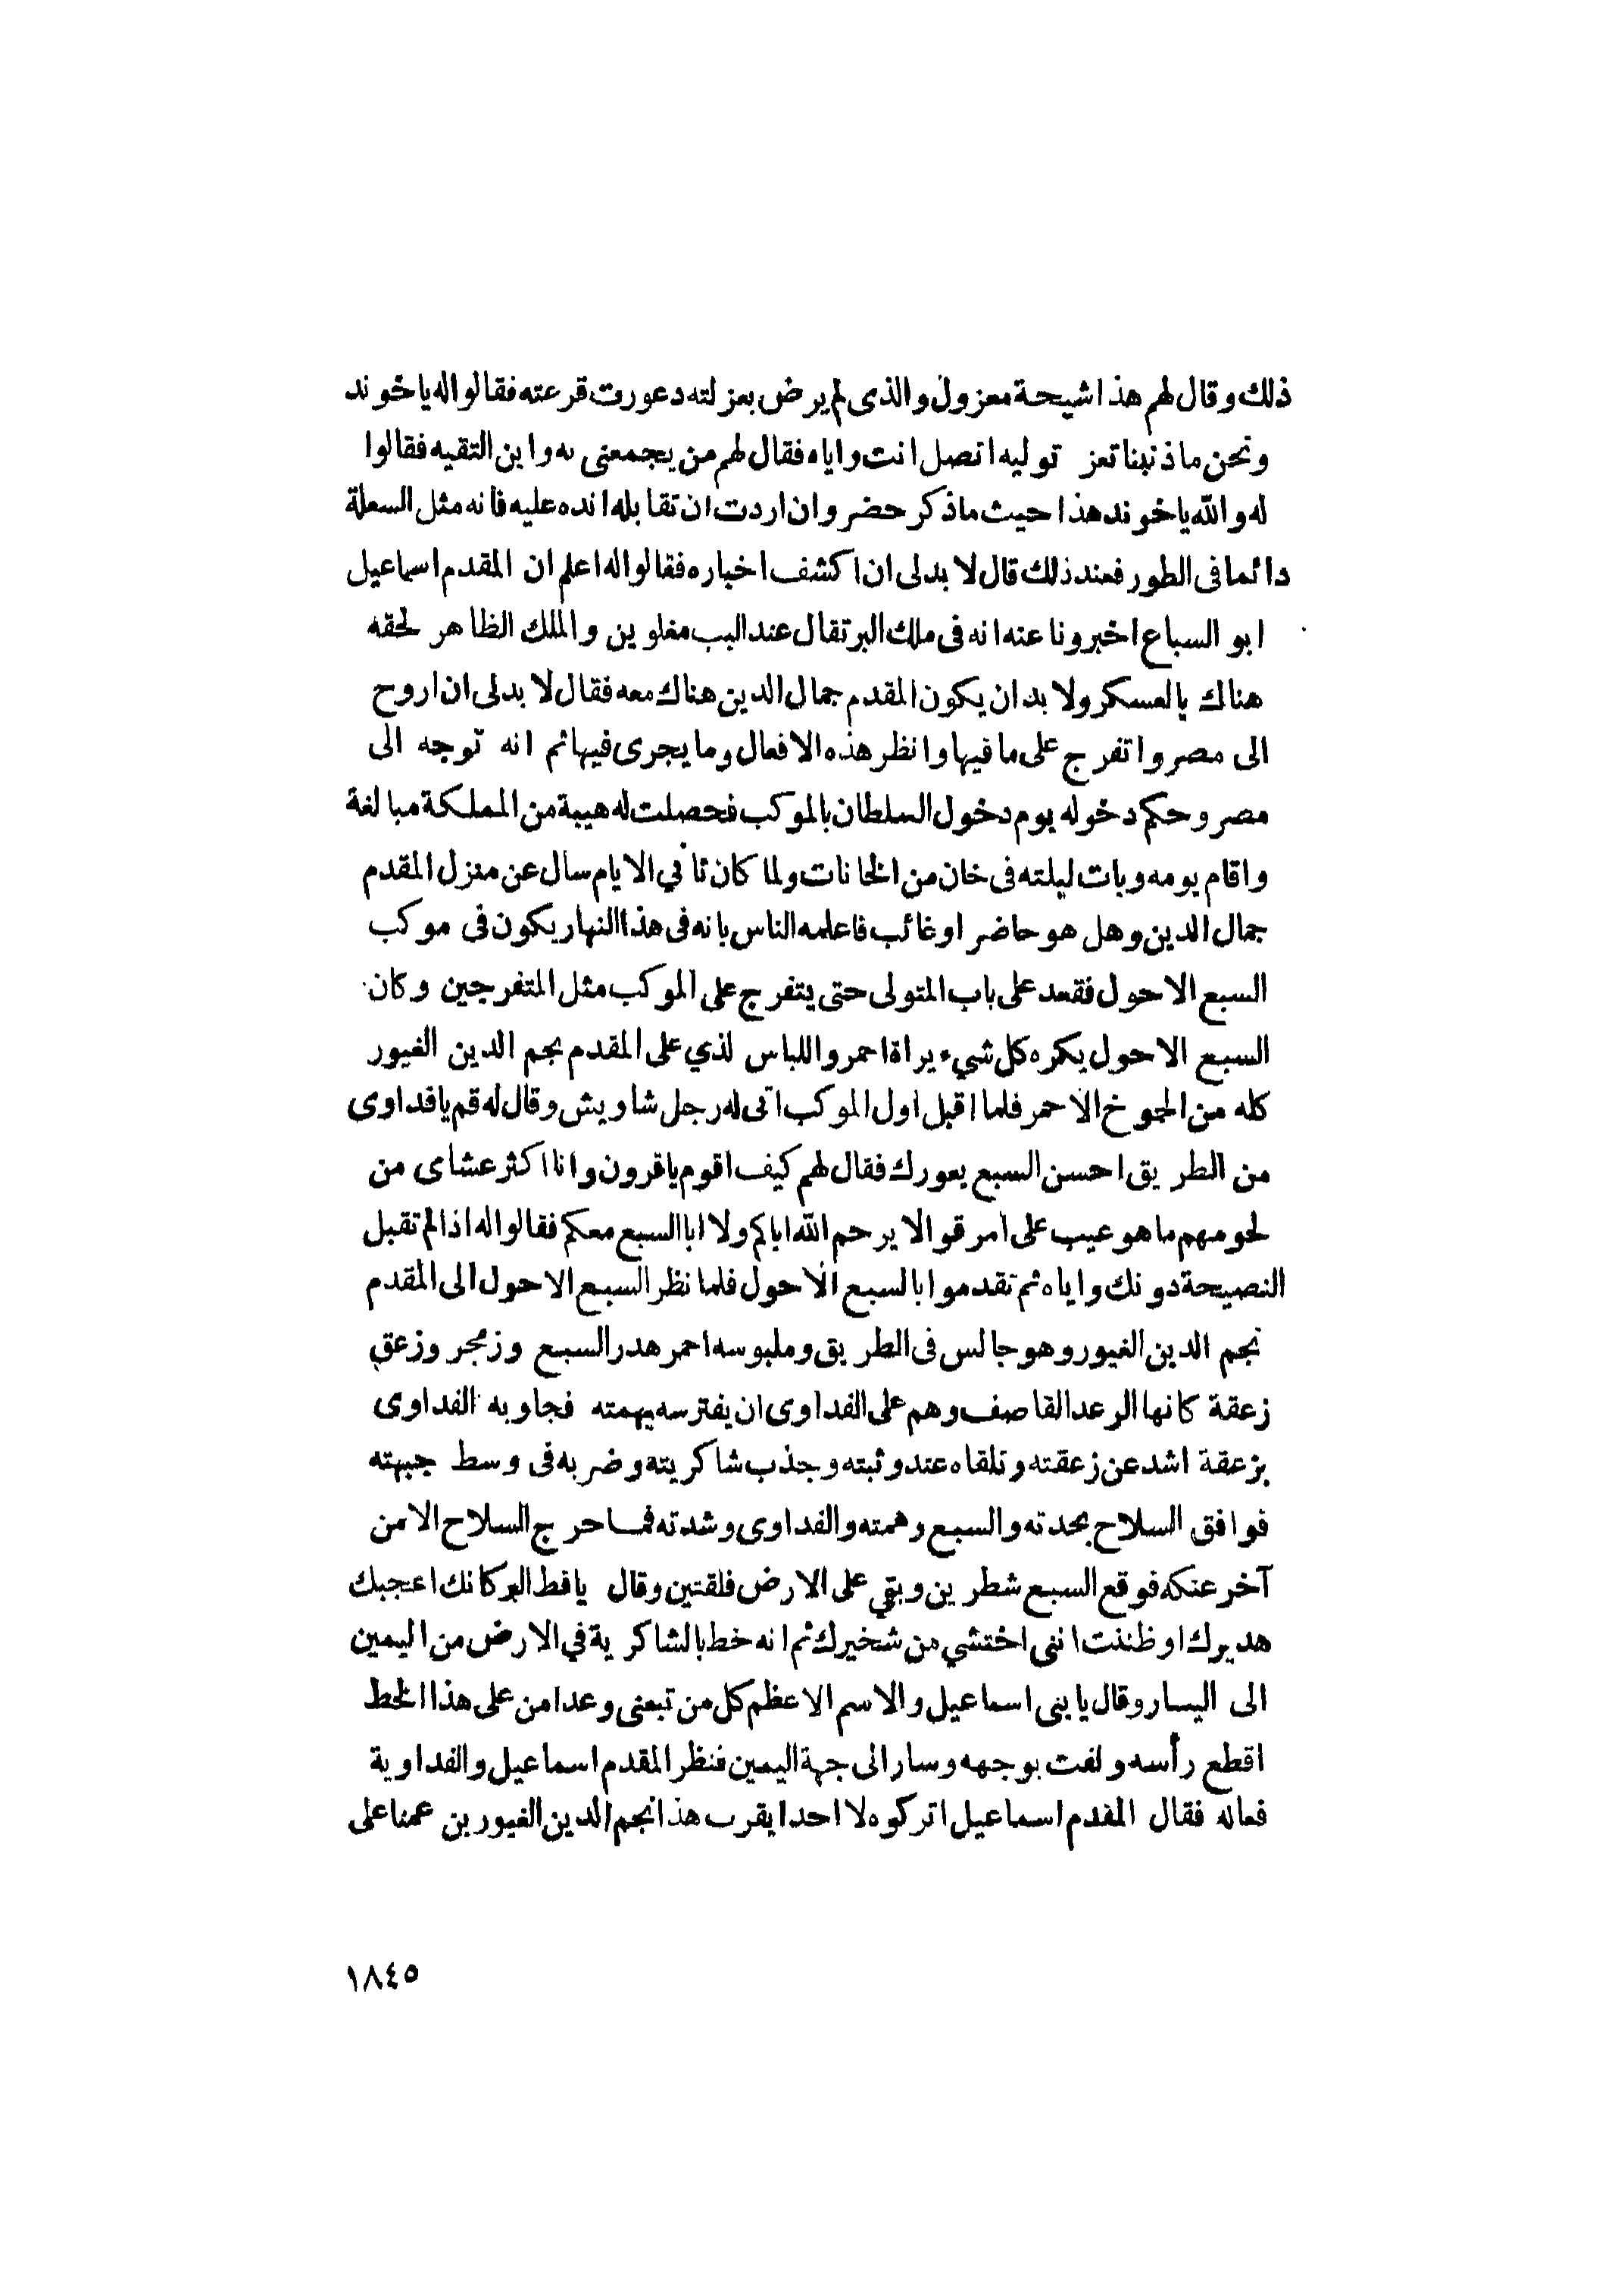 ذلك وقال لهم هذا شيحة معزول والذى لم يرض بعزلته دعورت قرعته فقالوا له ياخوند
ونحن ماذنبنا تعز توليه اتصل انت واياه فقال لهم من يجمعنى به واين التقيه فقالوا
له والله ياخوند هذا حيث ماذكر حضر وان اردت ان تقابله انده عليه فانه مثل السعلة
دائما فى الطور فعند ذلك قال لا بد لى ان اكشف اخباره فقالوا له اعلم ان المقدم اسماعيل
ابو السباع اخبرونا عنه انه فى ملك البرتقال عند البب مغلوين والملك الظاهر لحقه
هناك بالعسكر ولا بد ان يكون المقدم جمال الدين هناك معه فقال لا بد لى ان اروح
الى مصر واتفرج على مافيها وانظر هذه الافعال وما يجرى فيها ثم انه توجه الى
مصر وحكم دخوله يوم دخول السلطان بالموكب فحصلت له هيبة من المملكة مبالغة
واقام يومه وبات ليلته فى خان من الخانات ولما كان ثاني الايام سال عن منزل المقدم
جمال الدين وهل هو حاضر او غائب فاعلمه الناس بانه فى هذا النهار يكون فى موكب
السبع الاحول فقعد على باب المتولى حتى يتفرج على الموكب مثل المتفرجين وكان
السبع الاحول يكره كل شيء يراة احمر واللباس لذي على المقدم نجم الدين الغيور
كله من الجوخ الاحمر فلما اقبل اول الموكب اتى له رجل شاويش وقال له قم يافداوى
من الطريق احسن السبع يعورك فقال لهم كيف اقوم ياقرون وانا اكثر عشاى من
لحومهم ما هو عيب على امر قوالا يرحم الله اباكم ولا ابا السبع معكم فقالوا له اذا لم تقبل
النصيحة دونك واياه ثم تقدموا بالسبع الاحول فلما نظر السبع الاحول الى المقدم
نجم الدين الغيور وهو جالس فى الطريق وملبوسه احمر هدر السبع وزمجر وزعق
زعقة كانها الرعد القاصف وهم على الفداوى ان يفترسه بهمته فجاوبه الفداوى
بزعقة اشد عن زعقته وتلقاه عند وثبته وجذب شاكريته وضربه فى وسط جبهته
فوافق السلاح بحدته والسبع وهمته والفداوى وشدته فما حرج السلاح الا من
آخر عنكه فوقع السبع شطرين وبقي على الارض فلقتين وقال ياقط البر كانك اعجبك
هديرك او ظننت اننى اختشي من شخيرك ثم انه خط بالشاكرية في الارض من اليمين
الى اليسار وقال يا بنى اسماعيل والاسم الاعظم كل من تبعنى وعدا من على هذا الخط
اقطع رأسه ولفت بوجهه وسار الى جهة اليمين فنظر المقدم اسماعيل والفداوية
فعاله فقال المقدم اسماعيل اتركوه لا احدا يقرب هذا نجم الدين الغيور بن عمنا على
١٨٤٥